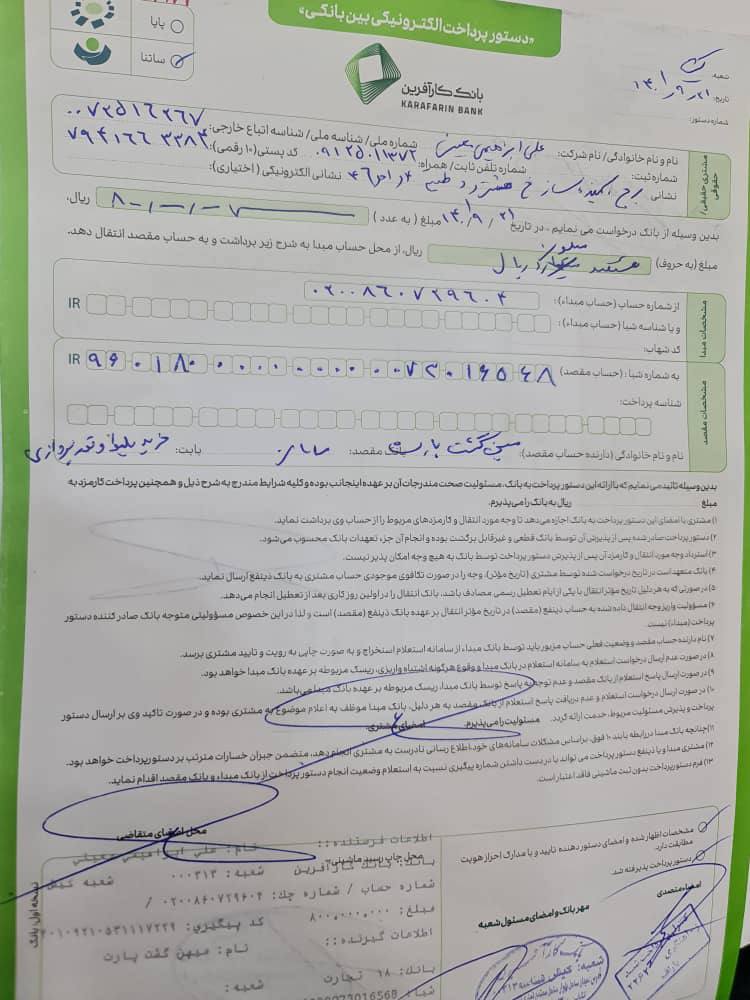 «دستور پرداخت الکترونیکی بین بانکی»
پایا
ساتنا
بانک کارآفرین
KARAFARIN BANK
شعبه:
تاریخ: ۱۴۰۱/۹/۲۱
شماره دستور:
مشتری حقیقی/حقوقی
نام و نام خانوادگی/ نام شرکت: علی ابراهیمی شماره ملی/ شناسه ملی/ شناسه اتباع خارجی:
شماره ثبت: شماره تلفن ثابت/ همراه: کد پستی (۱۰ رقمی):
نشانی نشانی الکترونیکی (اختیاری):
بدین وسیله از بانک درخواست می نمایم، در تاریخ ۱۴۰۱/۹/۲۱ مبلغ ( به عدد ) ریال،
مبلغ (به حروف) هشتصد میلیون ریال ریال، از محل حساب مبدا به شرح زیر برداشت و به حساب مقصد انتقال دهد.
مشخصات مبدا
از شماره حساب (حساب مبداء): ۰۲۰۰۸۶۰۷۲۹۶۰۴
و یا شناسه شبا (حساب مبداء): IR
کد شهاب:
مشخصات مقصد
به شماره شبا: (حساب مقصد) IR
شناسه پرداخت:
نام و نام خانوادگی (دارنده حساب مقصد): میهن گشت پارت بانک مقصد: بابت: خرید بلیط
بدین وسیله تائید می نمایم که با ارائه این دستور پرداخت به بانک، مسئولیت صحت مندرجات آن بر عهده اینجانب بوده و کلیه شرایط مندرج به شرح ذیل و همچنین پرداخت کارمزد به
مبلغ ریال به بانک را می پذیرم.
۱) مشتری با امضای این دستور پرداخت به بانک اجازه می دهد تا وجه مورد انتقال و کارمزدهای مربوط را از حساب وی برداشت نماید.
۲) دستور پرداخت صادر شده پس از پذیرش آن توسط بانک قطعی و غیرقابل برگشت بوده و انجام آن جزء تعهدات بانک محسوب می شود.
۳) استرداد وجه مورد انتقال و کارمزد آن پس از پذیرش دستور پرداخت توسط بانک به هیچ وجه امکان پذیر نیست.
۴) بانک متعهد است در تاریخ درخواست شده توسط مشتری (تاریخ مؤثر)، وجه را در صورت تکافوی موجودی حساب مشتری به بانک ذینفع ارسال نماید.
۵) در صورتی که به هر دلیل تاریخ مؤثر انتقال با یکی از ایام تعطیل رسمی مصادف باشد، بانک انتقال را در اولین روز کاری بعد از تعطیل انجام می دهد.
۶) مسؤولیت واریز وجه انتقال داده شده به حساب ذینفع (مقصد) در تاریخ مؤثر انتقال بر عهده بانک ذینفع (مقصد) است و لذا در این خصوص مسؤولیتی متوجه بانک صادر کننده دستور
پرداخت (مبداء) نیست.
۷) نام دارنده حساب مقصد و وضعیت فعلی حساب مزبور باید توسط بانک مبداء از سامانه استعلام استخراج و به صورت چاپی به رویت و تایید مشتری برسد.
۸) در صورت عدم ارسال درخواست استعلام به سامانه استعلام در بانک مبدا و وقوع هرگونه اشتباه واریزی، ریسک مربوطه بر عهده بانک مبدا خواهد بود.
۹) در صورت ارسال پاسخ استعلام از بانک مقصد و عدم توجه به پاسخ توسط بانک مبدا، ریسک مربوطه بر عهده بانک مبدا می باشد.
۱۰) در صورت ارسال درخواست استعلام و عدم دریافت پاسخ استعلام از بانک مقصد به هر دلیل، بانک مبدا موظف به اعلام موضوع به مشتری بوده و در صورت تاکید وی بر ارسال دستور
پرداخت و پذیرش مسئولیت مربوط، خدمت ارائه گردد. مسئولیت را می پذیرم. امضای مشتری.
۱۱) چنانچه بانک مبدا در رابطه با بند ۱۰ فوق، براساس مشکلات سامانه های خود، اطلاع رسانی نادرست به مشتری انجام دهد، متضمن جبران خسارات مترتب بر دستور پرداخت خواهد بود.
۱۲) مشتری مبدا و یا ذینفع دستور پرداخت می تواند با در دست داشتن شماره پیگیری نسبت به استعلام وضعیت انجام دستور پرداخت از بانک مبداء و بانک مقصد اقدام نماید.
۱۳) فرم دستور پرداخت بدون ثبت ماشینی فاقد اعتبار است.
محل امضای متقاضی
مشخصات اظهار شده و امضای دستور دهنده تایید و با مدارک احراز هویت
مطابقت دارد.
دستور پرداخت پذیرفته شد.
امضاء متصدی
مهر بانک و امضای مسئول شعبه
محل چاپ رسید ماشینی
نسخه اول: بانک
اطلاعات فرستنده::
نام: علی ابراهیمی معینی
بانک: بانک کارآفرین شعبه: ۰۰۰۳۱۳ شعبه کیش
شماره حساب / شماره چک: ۰۲۰۰۸۶۰۷۲۹۶۰۴ /
مبلغ: ۸۰۰,۰۰۰,۰۰۰
اطلاعات گیرنده::
نام: میهن گشت پارت
بانک: ۱۸ تجارت شعبه: